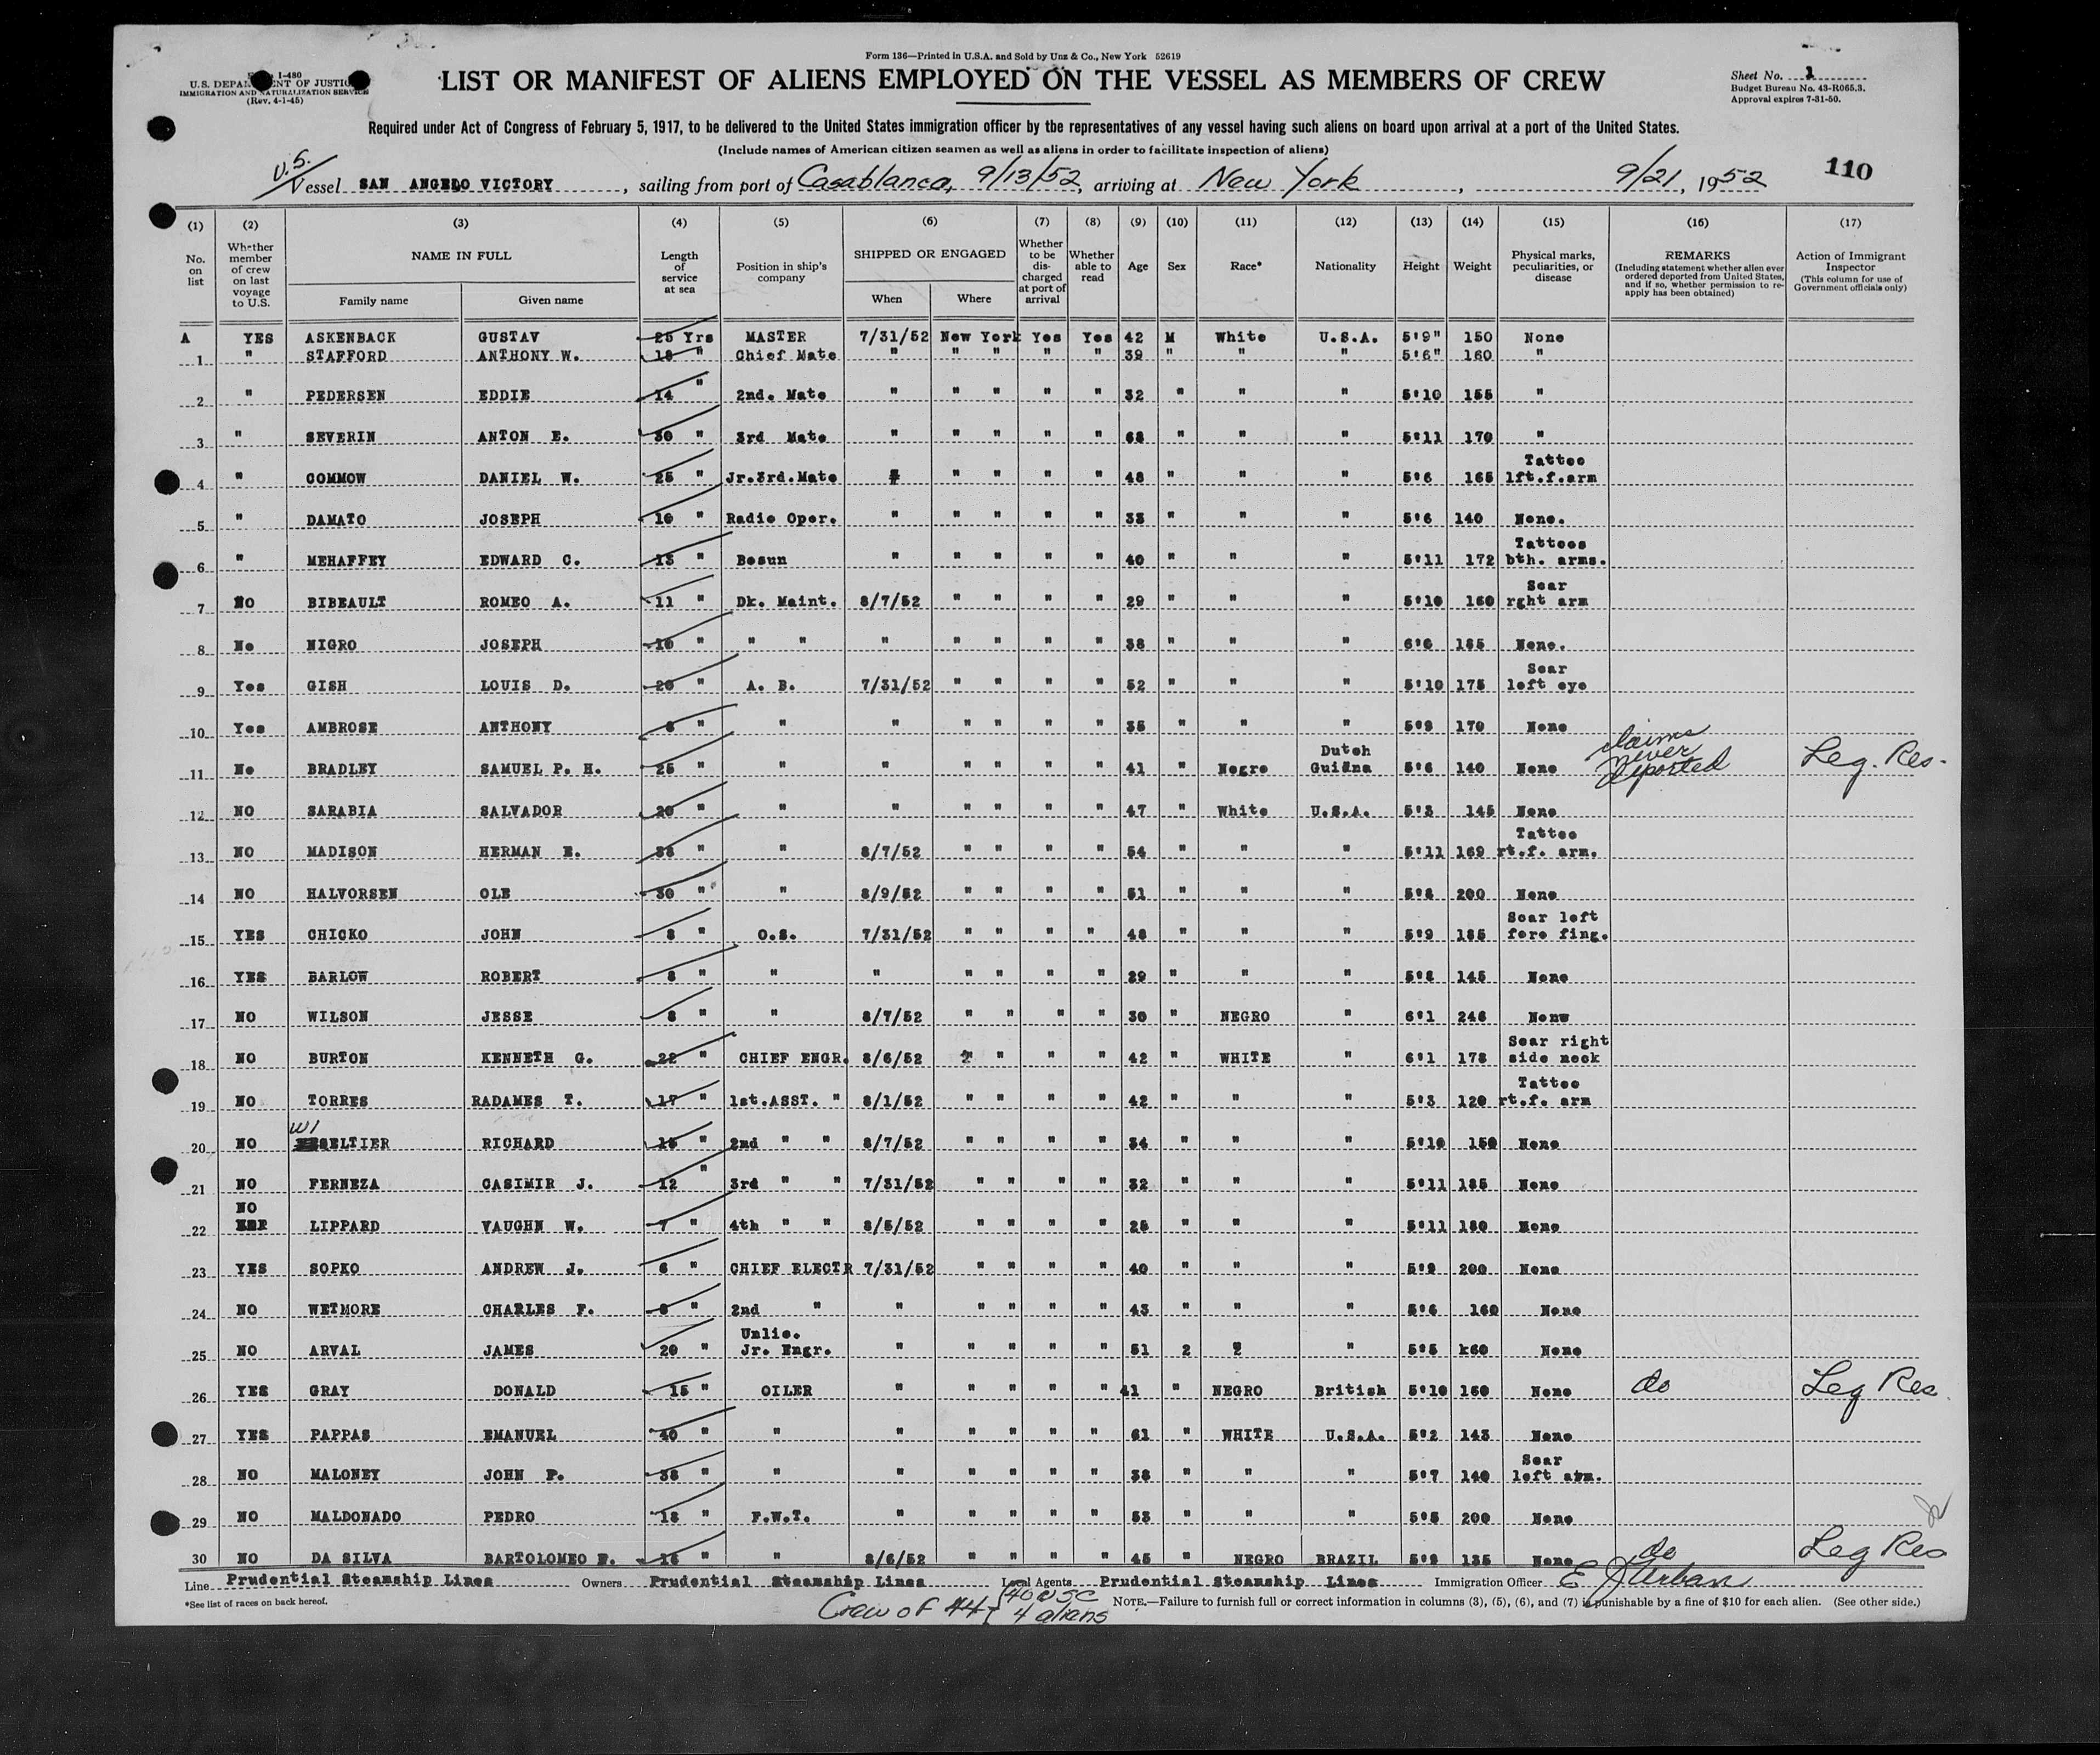 Form 136—Printed in U.S.A. and Sold by Unz & Co., New York 52619
I-480
U.S. DEPARTMENT OF JUSTICE
IMMIGRATION AND NATURALIZATION SERVICE
(Rev. 4-1-45)
LIST OR MANIFEST OF ALIENS EMPLOYED ON THE VESSEL AS MEMBERS OF CREW
Sheet No. 1
Budget Bureau No. 43-R065.3.
Approval expires 7-31-50.
Required under Act of Congress of February 5, 1917, to be delivered to the United States immigration officer by the representatives of any vessel having such aliens on board upon arrival at a port of the United States.
(Include names of American citizen seamen as well as aliens in order to facilitate inspection of aliens)
110
U.S.
Vessel SAN ANGELO VICTORY, sailing from port of Casablanca, 9/13/52, arriving at New York, 9/21, 1952
(1) (2) (3) (4) (5) (6) (7) (8) (9) (10) (11) (12) (13) (14) (15) (16) (17)
No. on list
Whether member of crew on last voyage to U.S.
NAME IN FULL
Family name
Given name
Length of service at sea
Position in ship's company
SHIPPED OR ENGAGED
When
Where
Whether to be discharged at port of arrival
Whether able to read
Age
Sex
Race*
Nationality
Height
Weight
Physical marks, peculiarities, or disease
REMARKS
(Including statement whether alien ever ordered deported from United States, and if so, whether permission to reapply has been obtained)
Action of Immigrant Inspector
(This column for use of Government officials only)
A YES ASKENBACK GUSTAV 25 Yrs MASTER 7/31/52 New York Yes Yes 42 M White U.S.A. 5'9" 150 None
1 " STAFFORD ANTHONY W. 18 " Chief Mate " " " " " 39 " " " 5'6" 160 "
2 " PEDERSEN EDDIE 14 " 2nd. Mate " " " " " 32 " " " 5'10 155 "
3 " SEVERIN ANTON E. 30 " 3rd Mate " " " " " 68 " " " 5'11 170 "
4 " COMMOW DANIEL W. 25 " Jr.3rd.Mate " " " " " 48 " " " 5'6 165 Tattoo lft.f.arm
5 " DAMATO JOSEPH 10 " Radio Oper. " " " " " 33 " " " 5'6 140 None.
6 " MEHAFFEY EDWARD C. 13 " Bosun " " " " " 40 " " " 5'11 172 Tattoos bth. arms.
7 NO BIBEAULT ROMEO A. 11 " Dk. Maint. 8/7/52 " " " " 29 " " " 5'10 160 Scar rght arm
8 No NIGRO JOSEPH 10 " " " " " " " " 38 " " " 6'0 185 None.
9 Yes GISH LOUIS D. 20 " A. B. 7/31/52 " " " " 52 " " " 5'10 175 Scar left eye
10 Yes AMBROSE ANTHONY 8 " " " " " " " 35 " " " 5'9 170 None
11 No BRADLEY SAMUEL P. H. 25 " " " " " " " 41 " Negro Dutch Guiana 5'6 140 None claims never deported Leg. Res.
12 NO SARABIA SALVADOR 20 " " " " " " " 47 " White U.S.A. 5'3 145 None
13 NO MADISON HERMAN E. 38 " " 8/7/52 " " " " 54 " " " 5'11 169 Tattoo rt.f. arm.
14 NO HALVORSEN OLE 30 " " 8/9/52 " " " " 51 " " " 5'8 200 None
15 YES CHICKO JOHN 8 " O.S. 7/31/52 " " " " 48 " " " 5'9 185 Scar left fore fing.
16 YES BARLOW ROBERT 8 " " " " " " " 29 " " " 5'8 145 None
17 NO WILSON JESSE 8 " " 8/7/52 " " " " 30 " NEGRO " 6'1 246 Nonw
18 NO BURTON KENNETH G. 22 " CHIEF ENGR. 8/6/52 2 " " " 42 " WHITE " 6'1 178 Scar right side neck
19 NO TORRES RADAMES T. 17 " 1st.ASST. " 8/1/52 " " " " 42 " " " 5'3 120 Tattoo rt.f. arm
20 NO WISELTIER RICHARD 15 " 2nd " " 8/7/52 " " " " 34 " " " 5'10 150 None
21 NO FERNEZA CASIMIR J. 12 " 3rd " " 7/31/52 " " " " 32 " " " 5'11 185 None
22 NO LIPPARD VAUGHN W. 7 " 4th " " 8/5/52 " " " " 25 " " " 5'11 180 None
23 YES SOPKO ANDREW J. 6 " CHIEF ELECTR 7/31/52 " " " " 40 " " " 5'9 200 None
24 NO WETMORE CHARLES F. 8 " 2nd " " " " " " 43 " " " 5'6 160 None
25 NO ARVAL JAMES 20 " Unlic. Jr. Engr. " " " " " 51 2 2 " 5'5 k60 None
26 YES GRAY DONALD 15 " OILER " " " " " 41 " NEGRO British 5'10 160 None do Leg Res.
27 YES PAPPAS EMANUEL 40 " " " " " " " 61 " WHITE U.S.A. 5'2 143 None
28 NO MALONEY JOHN P. 38 " " " " " " " 38 " " " 5'7 140 Scar left arm.
29 NO MALDONADO PEDRO 18 " F.W.T. " " " " " 53 " " " 5'5 200 None
30 NO DA SILVA BARTOLOMEO F. 16 " " 8/6/52 " " " " 45 " NEGRO BRAZIL 5'8 135 None do Leg Res
Line Prudential Steamship Lines Owners Prudential Steamship Lines Local Agents Prudential Steamship Lines Immigration Officer E J Urban
*See list of races on back hereof.
Crew of 44 { 40 USC
4 aliens
NOTE.—Failure to furnish full or correct information in columns (3), (5), (6), and (7) is punishable by a fine of $10 for each alien. (See other side.)